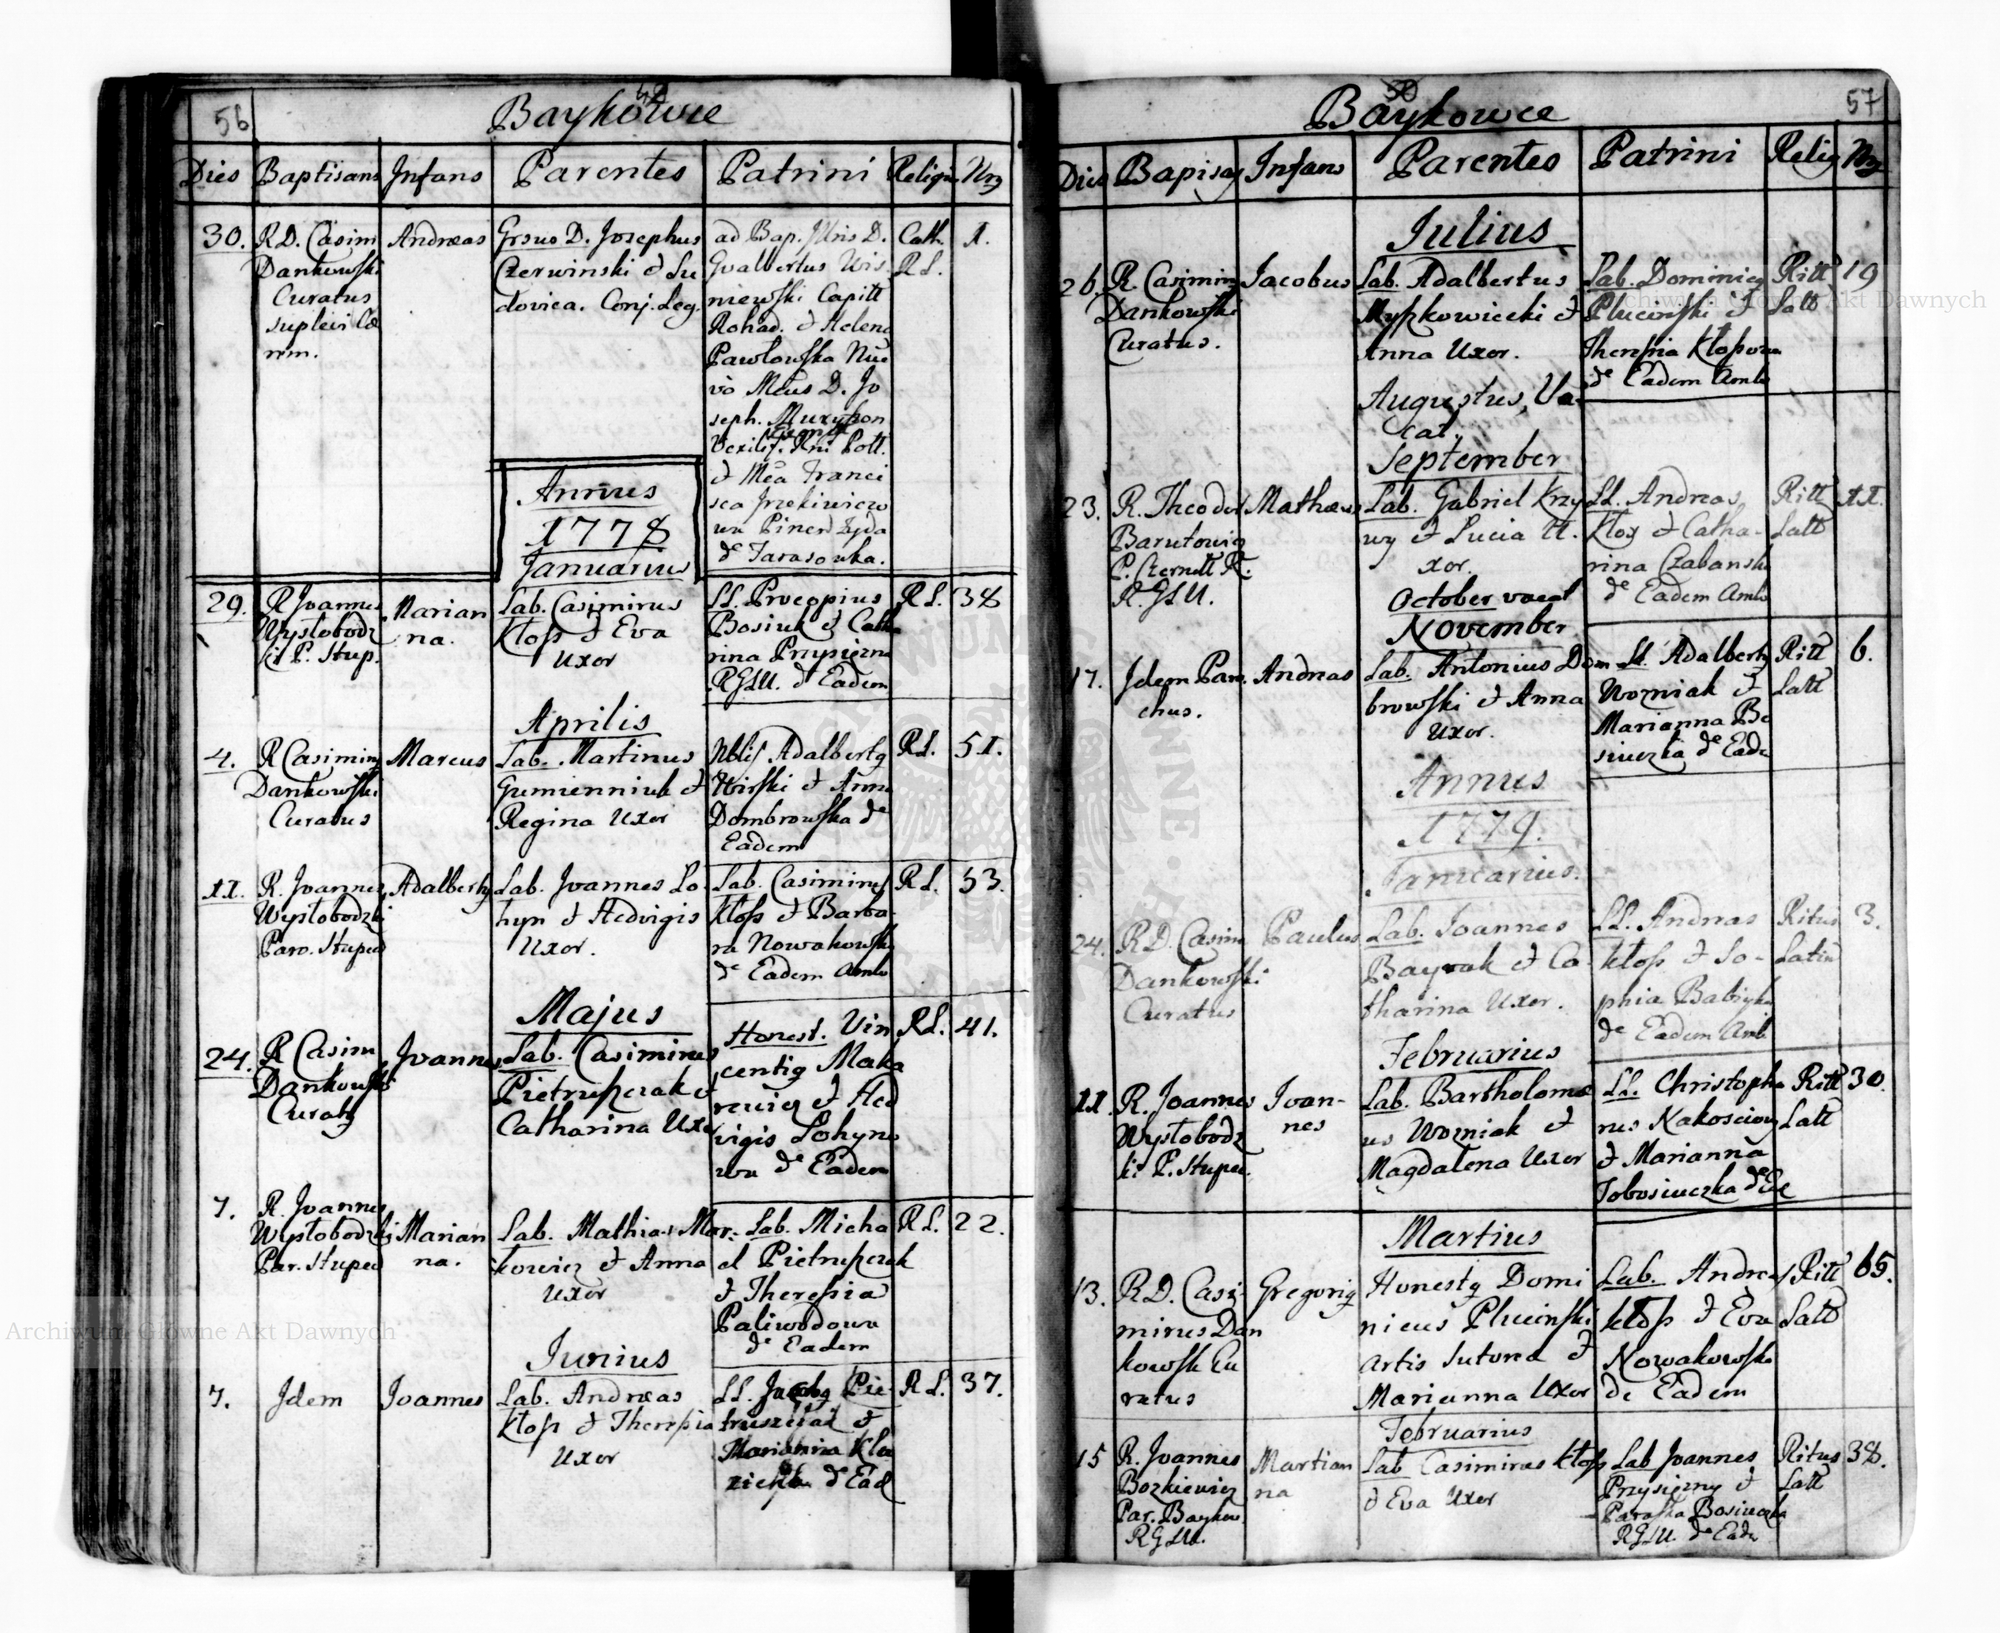 56
Baykowce
Dies Baptisans Infans Parentes Patrini Religio Nrg
30. R D. Casim
Dankowski
Curatus
suplevi Cæ
rem.
Andreas
Grsus D. Josephus
Czerwinski & Lu
dovica. Conj. Leg.
ad Bap. Illris D.
Gvalbertus Wis
niewski Capitt
Rohad. & Helena
Pawłowska
D. Jo
seph.
& Franci
sca
de Tarasowka.
Cath.
R L.
1.
Annus
1778
Januarius
29.
R Joannes
Wysłobodz
ki P. Stup.
Marian
na.
Lab. Casimirus
Kłoss & Eva
Uxor
LL. Procopius
Bosiuk & Catha
rina Przysiężna
RGLU. de Eadem
R L.
38
Aprilis
4.
R Casimirg
Dankowski
Curatus
Marcus
Lab. Martinus
Gumienniuk &
Regina Uxor
Nblis Adalbertg
Hirski & Anna
Dombrowska de
Eadem
R L.
51.
11.
R. Joannes
Wysłobodzki
Paro. Stuped
Adalbertg
Lab. Joannes Lo-
hyn & Hedvigis
Uxor.
Lab. Casimirus
Kłoss & Barba-
ra Nowakowska
de Eadem Ambo
R L.
53.
Majus
24.
R Casim
Dankowski
Curatg
Joannes
Lab. Casimirus
Pietruszczak &
Catharina Uxor
Honest. Vin
centig Maka
rewicz & Hed
vigis Lohyno
wa de Eadem
R L.
41.
7.
R. Joannes
Wysłobodzki
Par. Stuped
Marian
na.
Lab. Mathias Mar-
kowicz & Anna
Uxor
Lab. Micha
el Pietruszczak
& Theressia
Paliwodowa
de Eadem
R L.
22.
Junius
7.
Idem
Joannes
Lab. Andreas
Kłoss & Theressia
Uxor
LL. Jacobg Pie-
truszczak &
Marianna
de Ead
R L.
37.
57
Baykowce
Dies Bapisas Infans Parentes Patrini Relig Nrg
Julius
26.
R. Casimirg
Dankowski
Curatus.
Jacobus
Lab. Adalbertus
Myszkowiecki &
Anna Uxor.
Lab. Dominicg
Plucinski &
Theressia Kłosowa
de Eadem Ambo
Ritt
Latt
19
Augustus, Va-
cat.
September
23.
R. Theodor
Barutowicz
P. Czernell K.
R. GLU.
Mathæus
Lab. Gabriel Krzy
wy & Lucia U.
xor.
LL. Andreas
Kłoss & Catha-
rina Czabanska
de Eadem Ambo
Ritt
Latt
11.
October vacat
November
17.
Idem Paro
chus.
Andreas
Lab. Antonius Dom
browski & Anna
Uxor.
LL. Adalbertg
Wozniak &
Marianna Bo
siuczka de Eade
Ritt
Latt
6.
Annus
1779.
Januarius.
24.
R D. Casim
Dankowski
Curatus
Paulus
Lab. Joannes
Bayrak & Ca-
tharina Uxor.
LL. Andreas
Kłoss & So-
phia Babiyka
de Eadem Amb
Ritus
Latin
3.
Februarius
11.
R. Joannes
Wysłobodz
ki P. Stuped.
Joan-
nes
Lab. Bartholomæ
us Wozniak &
Magdalena Uxor
LL. Christopho
rus Nakosciony
& Marianna
Tobosiuczka de Ee
Ritt
Latt
30.
Martius
13.
R D. Casi-
mirus Dan
kowski Cu
ratus
Gregorig
Honestg Domi
nicus Plucinski
Artis Sutoria &
Marianna Uxor
Lab. Andreas
Kłoss & Eva
Nowakowska
de Eadem
Ritt
Latt
65.
Februarius
15
R. Joannes
Bozkiewicz
Par. Baykow.
RGLU.
Martian
na
Lab Casimirus Kłoss
& Eva Uxor
Lab Joannes
Przysiężny &
Paraska Bosiuczka
RGLU. de Eade
Ritus
Latt
38.
Archiwum Główne Akt Dawnych
Archiwum Główne Akt Dawnych